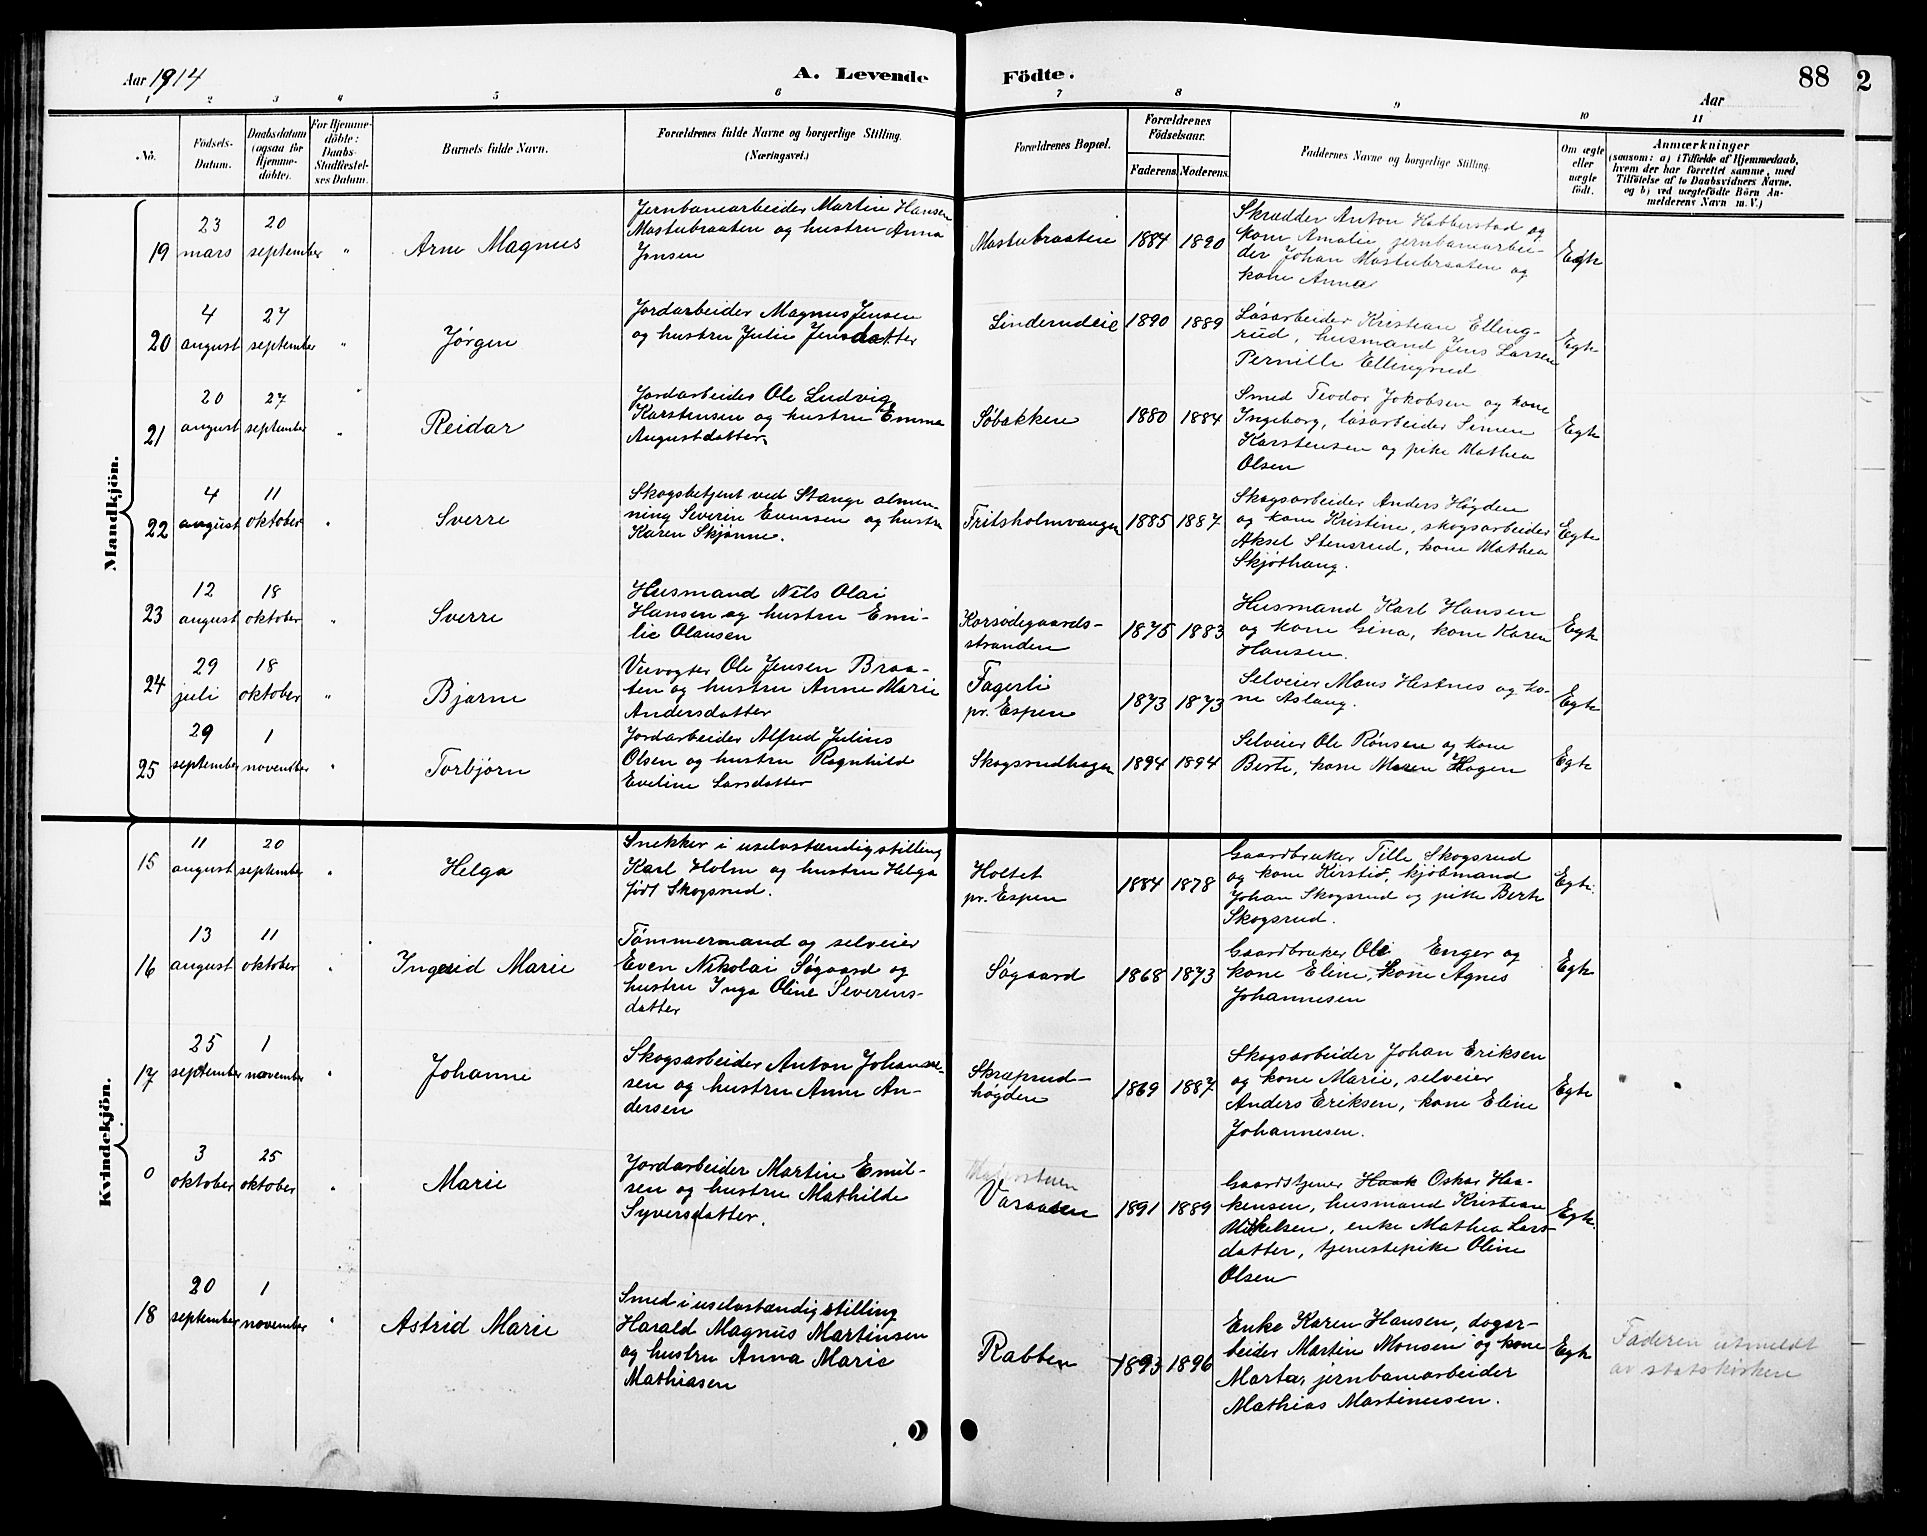 Aar 1914
A. Levende Födte.
88
2
Aar
1 2 3 4 5 6 7 8 9 10 11
No.
Födsels-
Datum.
Daabsdatum
(ogsaa for
Hjemme-
döbte).
For Hjemme-
döbte:
Daabs-
Stadfæstel-
ses Datum.
Barnets fulde Navn.
Forældrenes fulde Navne og borgerlige Stilling.
(Næringsvei.)
Forældrenes Bopæl.
Forældrenes
Födselsaar.
Faderens. Moderens.
Faddernes Navne og borgerlige Stilling.
Om ægte
eller
uægte
född.
Anmærkninger
(saasom: a) i Tilfælde af Hjemmedaab,
hvem der har forrettet samme, med
Tilföielse af to Daabsvidners Navne,
og b) ved uægtefödte Börn An-
melderens Navn m. V.)
Mandkjön.
19
23
mars
20
september
"
Arne Magnus
Jernbanearbeider Martin Hansen
Mastubraaten og hustru Anna
Jensen
Mastubraaten
1884 1890
Skrædder Anton Habberstad og
kone Amalie, jernbanearbei-
der Johan Mastubraaten og
kone Anna
Egte
20
4
august
27
september
"
Jørgen
Jordarbeider Magnus Jensen
og hustru Julie Jensdatter
Linderudeie
1890 1889
Løsarbeider Kristian Elling-
rud, husmand Jens Larsen
Pernille Ellingsrud
Egte
21
20
august
27
september
"
Reidar
Jordarbeider Ole Ludvig
Karstensen og hustru Emma
Augustdatter
Søbakken
1880 1884
Smed Teodor Jokobsen og kone
Ingeborg, løsarbeider Simen
Karstensen og pike Mathea
Olsen
Egte
22
4
august
11
oktober
"
Sverre
Skogsbetjent ved Stange almen-
ning Severin Evensen og hustru
Karen Skjønne.
Fritsholmvangen
1885 1887
Skogsarbeider Anders Høgden
og kone Kristine, skogsarbeider
Aksel Stensrud, kone Mathea
Skjøthaug.
Egte
23
12
august
18
oktober
"
Sverre
Husmand Nils Olai
Hansen og hustru Emi-
lie Olausen
Korsødegaards-
stranden
1875 1883
Husmand Karl Hansen
og kone Gina, kone Karen
Hansen.
Egte
24
29
juli
18
oktober
"
Bjarne
Veivogter Ole Jensen Braa-
ten og hustru Anne Marie
Andersdatter
Fagerli
pr. Espen
1873 1873
Selveier Mons Hestnes og ko-
ne Aslaug.
Egte
25
29
september
1
november
"
Torbjørn
Jordarbeider Alfred Julius
Olsen og hustru Ragnhild
Eveline Larsdatter
Skogsrudhagen
1894 1894
Selveier Ole Rønsen og kone
Berte, kone Maren Hagen
Egte
Kvindekjön.
15
11
august
20
september
"
Helga
Snekker i uselvstændig stilling
Karl Holm og hustru Helga
født Skogsrud.
Holtet
pr. Espen
1884 1878
Gaardbruker Tille Skogsrud
og kone Kirstie, kjøbmand
Johan Skogsrud og pike Berte
Skogsrud.
Egte.
16
13
august
11
oktober
"
Ingerid Marie
Tømmermand og selveier
Even Nikolai Søgaard og
hustru Inga Oline Severins-
datter
Søgaard
1868 1873
Gaardbruker Ole Enger og
kone Eline, kone Agnes
Johannesen
Egte
17
25
september
1
november
"
Johanne
Skogsarbeider Anton Johanne-
sen og hustru Anne An-
dersen
Skræprud-
høgden
1869 1887
Skogsarbeider Johan Eriksen
og kone Marie, selveier
Anders Eriksen, kone Eline
Johannesen.
Egte
0
3
oktober
25
oktober
"
Marie
Jordarbeider Martin Emil-
sen og hustru Mathilde
Syversdatter.
Varaasen
1891 1889
Gaardstjener Haak Oskar Haa-
kensen, husmand Kristian
Mikkelsen, enke Mathea Lars-
datter, tjenestepike Oline
Olsen
Egte.
18
20
september
1
november
"
Astrid Marie
Smed i uselvstændig stilling
Harald Magnus Martinsen
og hustru Anna Marie
Mathiasen
Rabben
1893 1896
Enke Karen Hansen, dagar-
beider Martin Monsen og kone
Marta, jernbanearbeider
Mathias Martinusen.
Egte
Faderen utmeldt
av statskirken